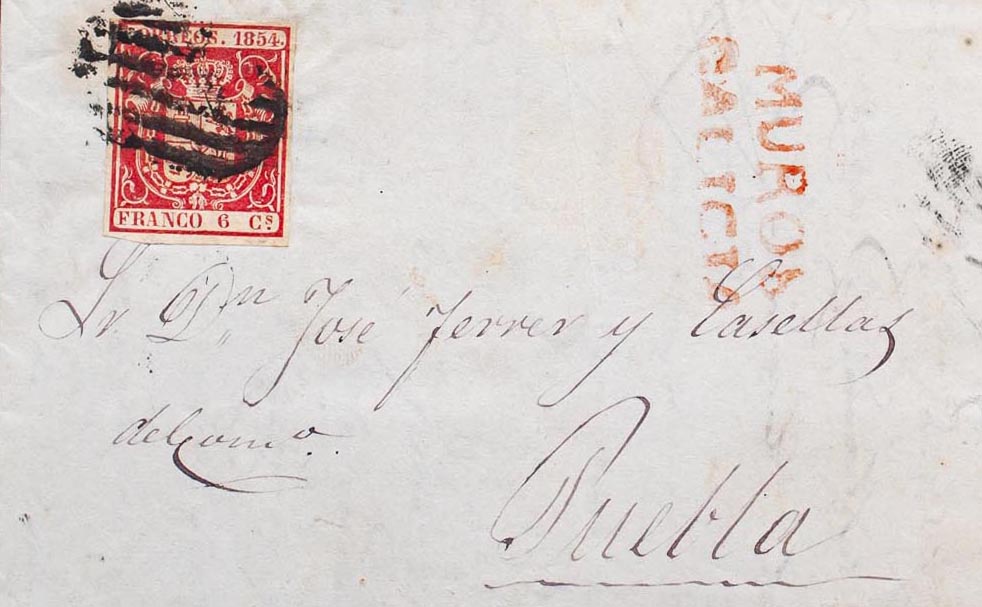 CORREOS. 1854.
FRANCO 6 Cs.
MUROS
GALICIA
Sr. Dn José Ferrer y Casellas
del Como.
Puebla